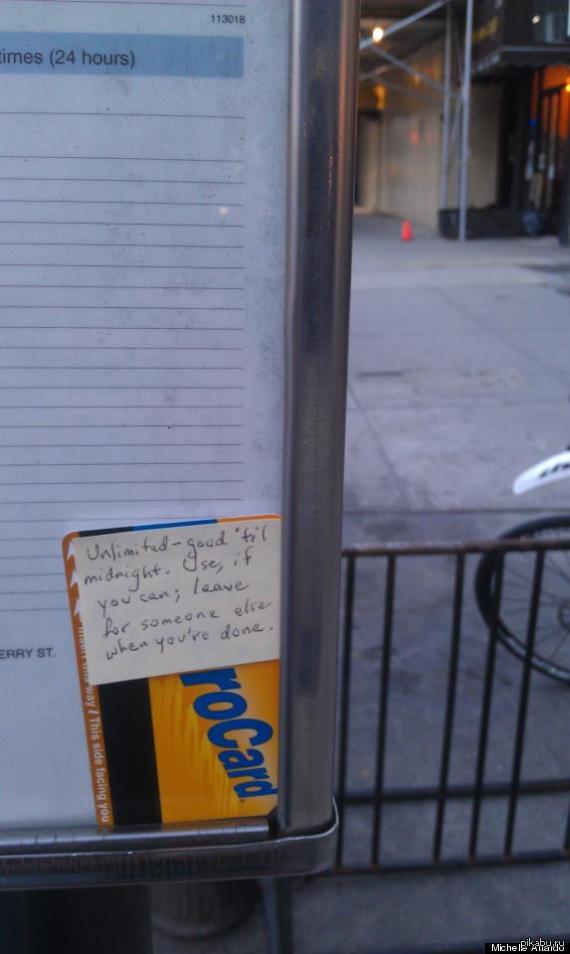 113018
times (24 hours)
Unlimited - good 'til
midnight. Use, if
you can; leave
for someone else
when you're done.
ERRY ST.
roCard
insert this way / This side facing you
pikabu.ru
Michelle Attardo